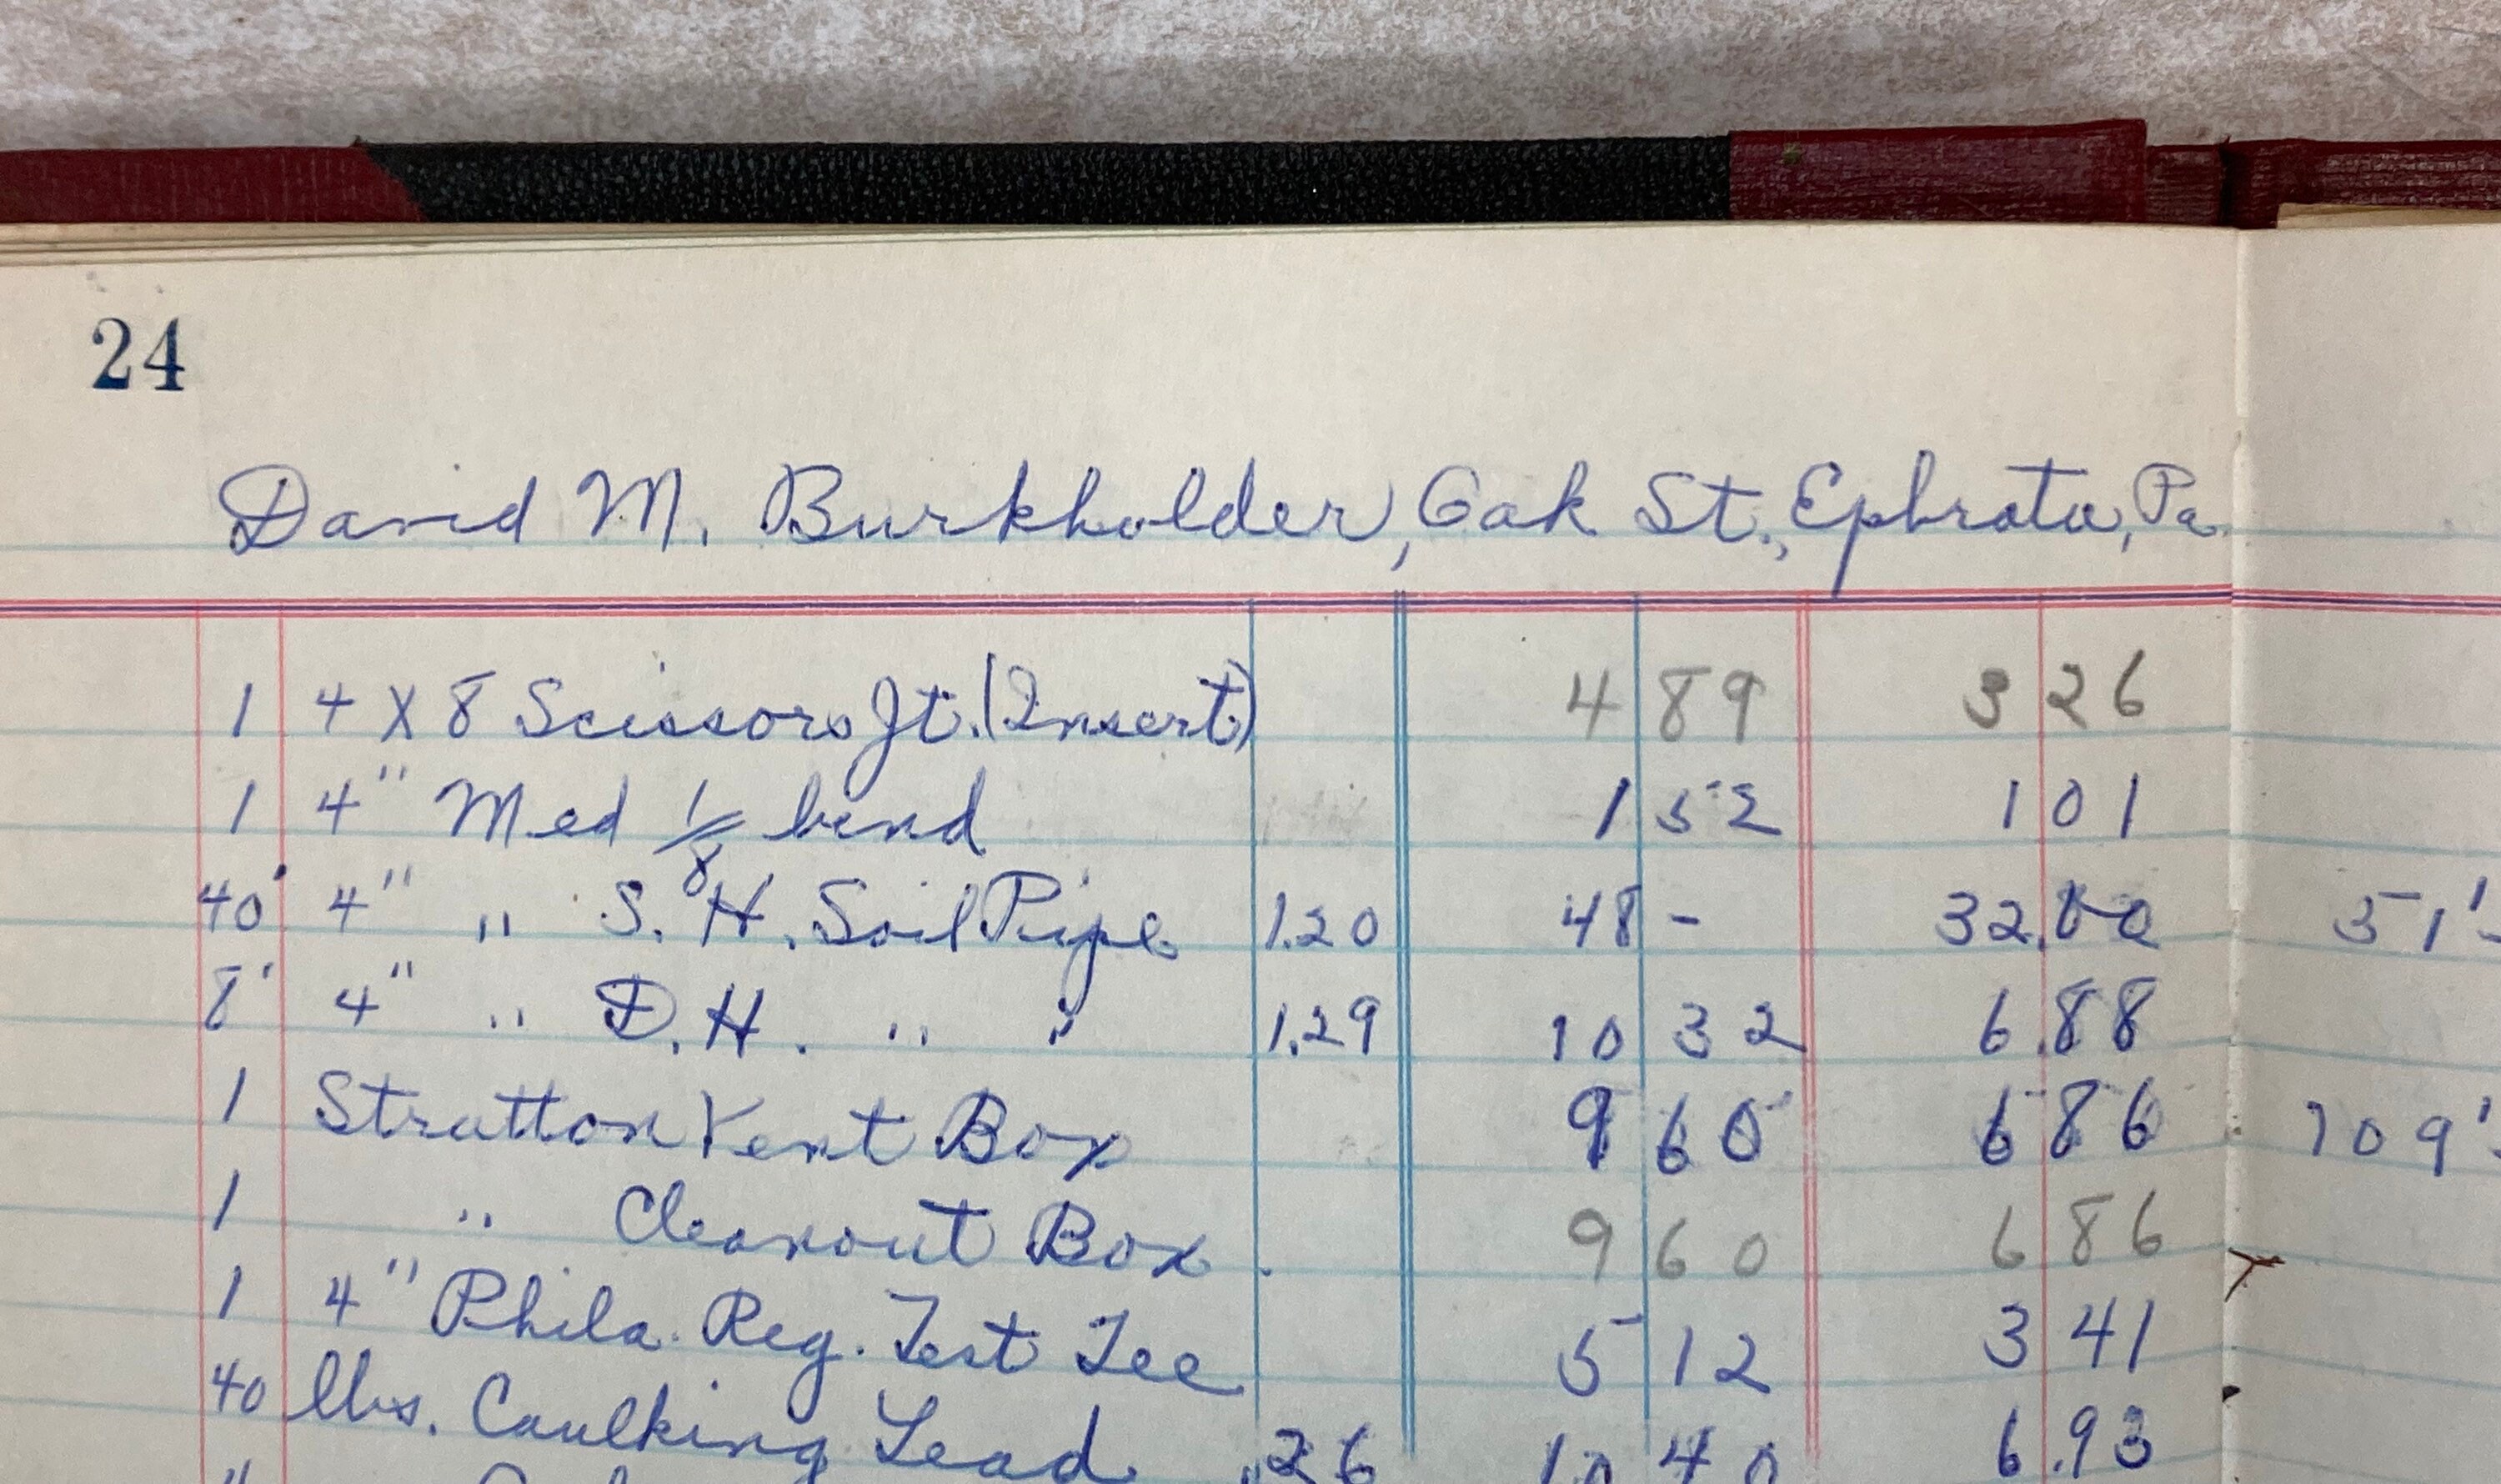 24
David M. Burkholder, Oak St., Ephrata, Pa.
1 4 X 8 Scissors Jt. (Insert) 4 89 3 26
1 4" Med 1/8 bend 1 52 1 01
40' 4" " S. H. Soil Pipe 1.20 48 - 32.00 51'
8' 4" " D. H. " " 1.29 10 32 6.88
1 Stratton Vent Box 9 60 6 86 109'
1 " Cleanout Box. 9 60 6 86
1 4" Phila. Reg. Test Tee 5 12 3 41
40 lbs. Caulking Lead .26 10 40 6.93